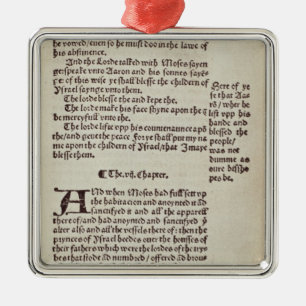 be vowed/ euen so he must doo in the lawe of
his abstinence.
And the Lorde talked with Moses sayen
ge: speake vnto Aaron and his sonnes sayen
ge: of this wise ye shall blesse the childern of
Ysrael sayenge vnto them.
The lorde blesse the and kepe the.
The lorde make his face shyne apon the &
be mercyfull vnto the.
The lorde lifte vpp his countenaunce apō
the/ and geue the peace. For ye shall put my na
me apon the childern of Ysrael/ that I maye
blesse them.
Here of ye
se that Aa
rō/ wher he
lift vpp his
hande and
blessed the
people/ he
was not
dumme as
oure bisshō
pes be.
The .vij. chapter.
AND when Moses had full sett vp
the habitacion and anoynted it ād
sanctifyed it and all the apparell
therof/ and had anoynted and sanctifyed ye
alter also and all the vessels there of: then the
prynces of Ysrael heedes ouer the houses of
their fathers which were the lordes of the try
bes that stode ād numbred/ offered ād brou